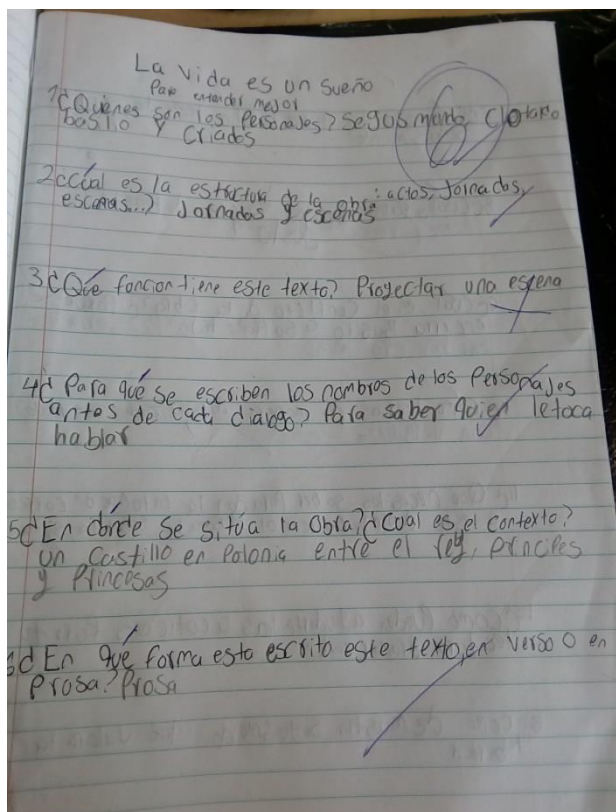 La Vida es un Sueño
Para entender mejor
1¿Quienes son los Personajes? Segusmundo, Clotardo
basilio y criados
6
2¿Cúal es la estructura de la obra: actos, Jornadas,
escenas...? Jornadas y escenas
3¿Qúe funcion tiene este texto? Proyectar una escena
4¿Para qúe se escriben los nombres de los Personajes
antes de cada dialogo? Para saber quien le toca
hablar
5¿En dónde Se sitúa la Obra? ¿Cual es el contexto?
un Castillo en Polonia entre el rey, principes
y Princesas
6¿En qúe forma esta escrito este texto, en verso o en
Prosa? Prosa